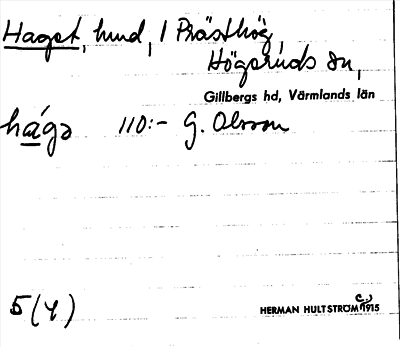 Haget, hmd, i Prästhög,
Högeruds sn,
Gillbergs hd, Värmlands län
hágə 110:- G. Olsson
5(4)
HERMAN HULTSTRÖM c. 1915